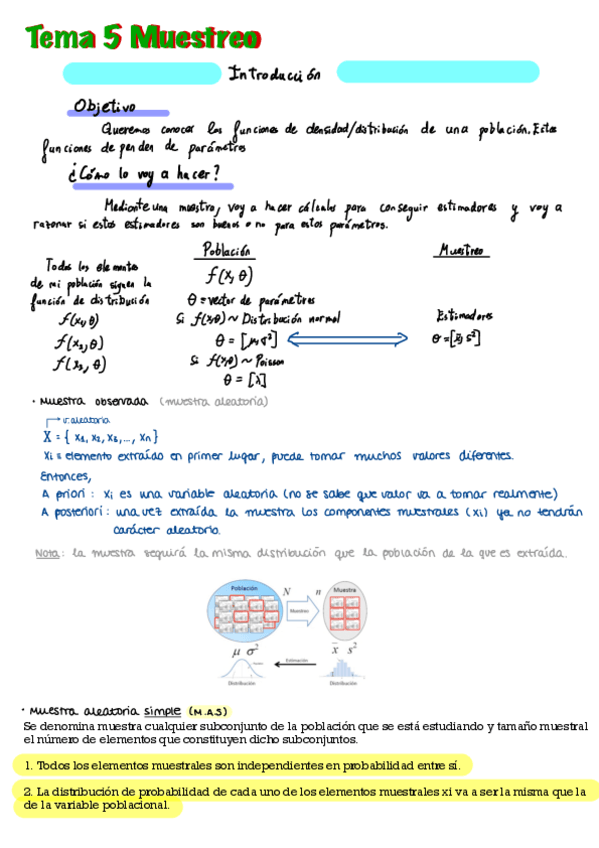 Tema 5 Muestreo
Introducción
Objetivo
Queremos conocer las funciones de densidad/distribución de una población. Estas
funciones dependen de parámetros
¿Cómo lo voy a hacer?
Mediante una muestra, voy a hacer cálculos para conseguir estimadores y voy a
razonar si estos estimadores son buenos o no para estos parámetros.
Población
Muestreo
Todos los elementos
de mi población siguen la
función de distribución
f(x₁,θ)
f(x₂,θ)
f(x₃,θ)
f(x,θ)
θ = vector de parámetros
Si f(x,θ) ~ Distribución normal
θ = [μ,σ²]
Si f(x,θ) ~ Poisson
θ = [λ]
Estimadores
θ = [x̄, s²]
· Muestra observada (muestra aleatoria)
v. aleatoria
X = { x₁, x₂, x₃, ..., xn }
xi = elemento extraído en primer lugar, puede tomar muchos valores diferentes.
Entonces,
A priori: xi es una variable aleatoria (no se sabe que valor va a tomar realmente)
A posteriori: una vez extraída la muestra los componentes muestrales (xi) ya no tendrán
carácter aleatorio.
Nota: la muestra seguirá la misma distribución que la población de la que es extraída.
Población N n Muestra
Muestreo
μ σ² x̄ s²
Estimación
Distribución Distribución
· Muestra aleatoria simple (M.A.S)
Se denomina muestra cualquier subconjunto de la población que se está estudiando y tamaño muestral
el número de elementos que constituyen dicho subconjuntos.
1. Todos los elementos muestrales son independientes en probabilidad entre sí.
2. La distribución de probabilidad de cada uno de los elementos muestrales xi va a ser la misma que la
de la variable poblacional.